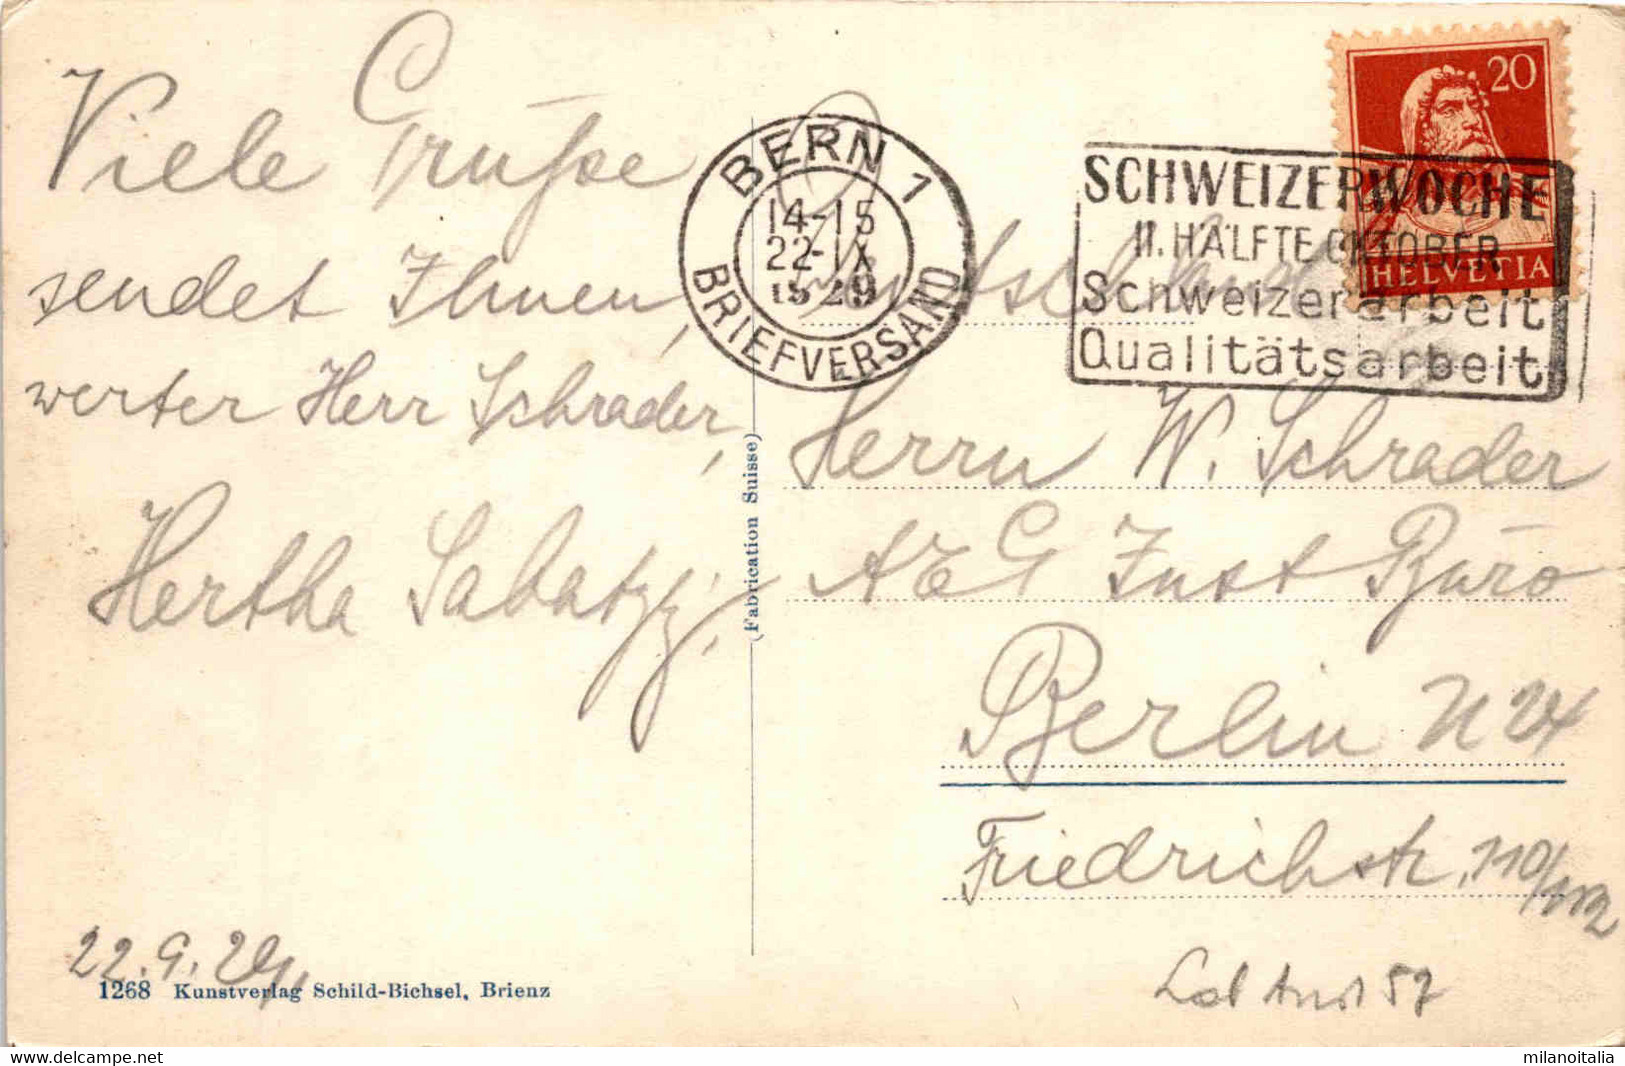 Viele Grüsse
sendet Ihnen,
werter Herr Schrader,
Hertha Sabatzy.
22.9.29.
1268 Kunstverlag Schild-Bichsel, Brienz
(Fabrication Suisse)
BERN 1
14-15
22-IX
1529
BRIEFVERSAND
20
HELVETIA
SCHWEIZERWOCHE
II. HÄLFTE OKTOBER
Schweizerarbeit
Qualitätsarbeit
Deutschland
Herrn W. Schrader
AEG Inst Büro
Berlin N 24
Friedrichstr. 110/112
57
hambo1960
milanoitalia